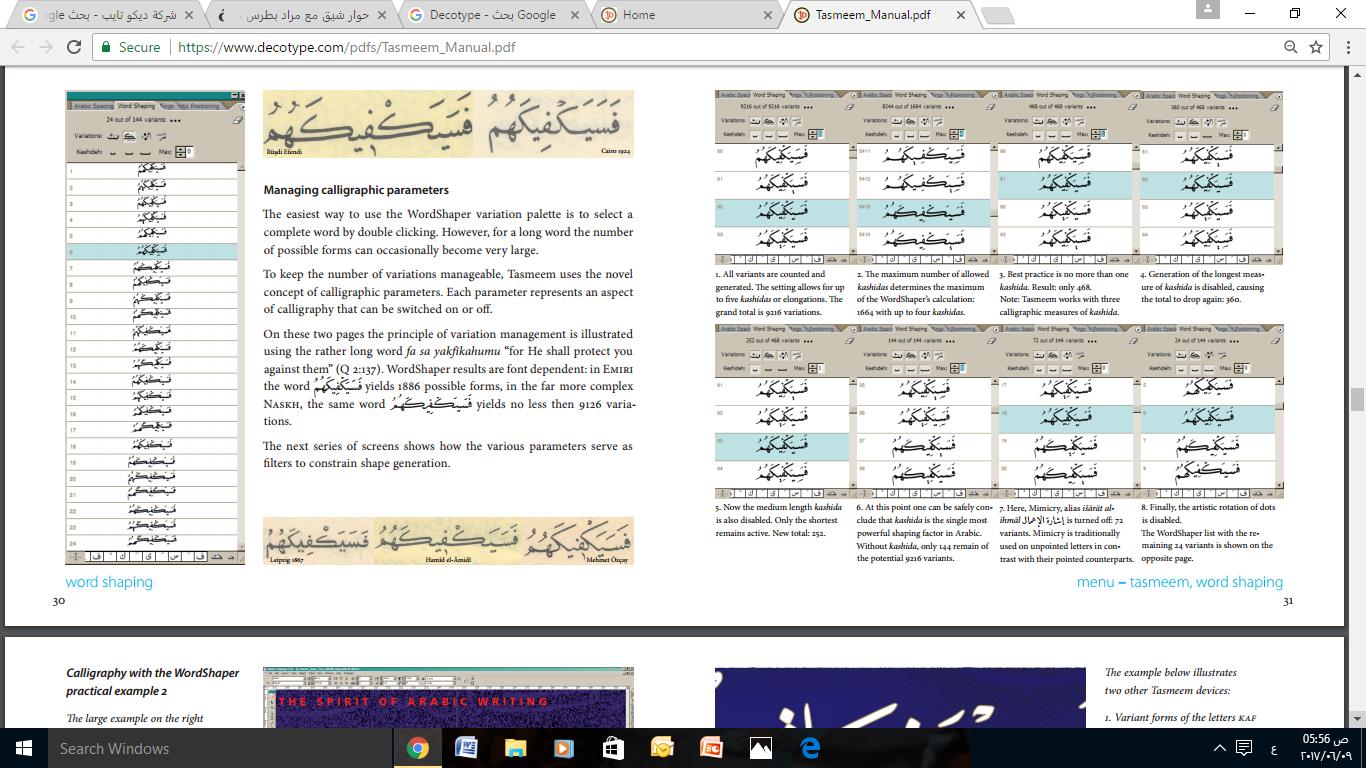 شركة ديكو تايب - بحث gle
حوار شيق مع مراد بطرس
Decotype - بحث Google
Home
Tasmeem_Manual.pdf
Secure | https://www.decotype.com/pdfs/Tasmeem_Manual.pdf
Arabic Spacing Word Shaping Positioning
24 out of 144 variants •••
Variations:
Kashideh: Max: 0
1
2
3
4
5
6
7
8
9
10
11
12
13
14
15
16
17
18
19
20
21
22
23
24
word shaping
30
فَسَيَكْفِيكَهُمُ فَسَيَكْفِيكَهُمُ
Rüşdi Efendi Cairo 1924
Managing calligraphic parameters
The easiest way to use the WordShaper variation palette is to select a
complete word by double clicking. However, for a long word the number
of possible forms can occasionally become very large.
To keep the number of variations manageable, Tasmeem uses the novel
concept of calligraphic parameters. Each parameter represents an aspect
of calligraphy that can be switched on or off.
On these two pages the principle of variation management is illustrated
using the rather long word fa sa yakfikahumu “for He shall protect you
against them” (Q 2:137). WordShaper results are font dependent: in EMIRI
the word فَسَيَكْفِيكَهُمُ yields 1886 possible forms, in the far more complex
NASKH, the same word فَسَيَكْفِيكَهُمُ yields no less then 9126 varia-
tions.
The next series of screens shows how the various parameters serve as
filters to constrain shape generation.
فَسَيَكْفِيكَهُمُ فَسَيَكْفِيكَهُمُ فَسَيَكْفِيكَهُمُ
Leipzig 1867 Hamîd el-Âmidî Mehmet Özçay
9216 out of 9216 variants •••
8244 out of 1664 variants •••
468 out of 468 variants •••
360 out of 468 variants •••
1. All variants are counted and
generated. The setting allows for up
to five kashidas or elongations. The
grand total is 9216 variations.
2. The maximum number of allowed
kashidas determines the maximum
of the WordShaper’s calculation:
1664 with up to four kashidas.
3. Best practice is no more than one
kashida. Result: only 468.
Note: Tasmeem works with three
calligraphic measures of kashida.
4. Generation of the longest meas-
ure of kashida is disabled, causing
the total to drop again: 360.
252 out of 468 variants •••
144 out of 144 variants •••
72 out of 144 variants •••
24 out of 144 variants •••
5. Now the medium length kashida
is also disabled. Only the shortest
remains active. New total: 252.
6. At this point one can be safely con-
clude that kashida is the single most
powerful shaping factor in Arabic.
Without kashida, only 144 remain of
the potential 9216 variants.
7. Here, Mimicry, alias išārāt al-
ihmāl إشارة الإهمال is turned off: 72
variants. Mimicry is traditionally
used on unpointed letters in con-
trast with their pointed counterparts.
8. Finally, the artistic rotation of dots
is disabled.
The WordShaper list with the re-
maining 24 variants is shown on the
opposite page.
menu – tasmeem, word shaping
31
Calligraphy with the WordShaper
practical example 2
The large example on the right
THE SPIRIT OF ARABIC WRITING
The example below illustrates
two other Tasmeem devices:
1. Variant forms of the letters KAF
Search Windows
ع
05:56 ص
٢٠١٧/٠٦/٠٩